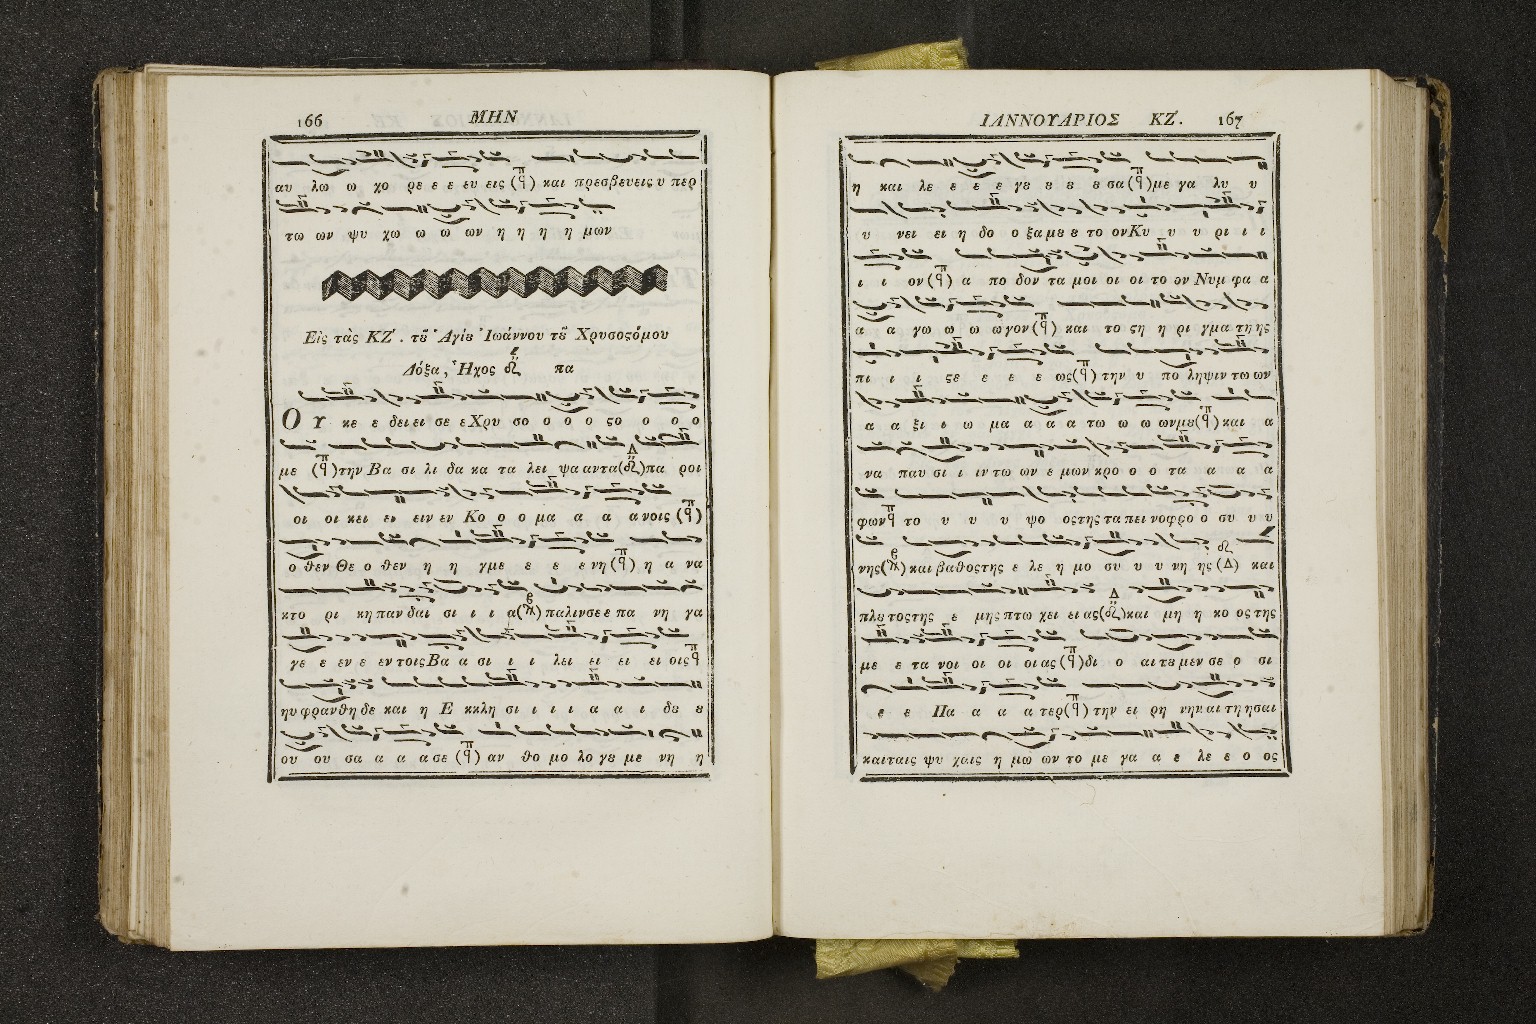 166 ΜΗΝ
αυ λω ω χο ρε ε ε ευ εις και πρεσβευεις υ περ
τω ων ψυ χω ω ω ων η η η η μων
Εἰς τὰς ΚΖ΄. τȣ͂ Ἁγίȣ Ἰωάννου τȣ͂ Χρυσοϛόμου
Δόξα, Ἦχος πα
Ο Υ κε ε δει ει σε ε Χρυ σο ο ο ο ϛο ο ο ο
με την Βα σι λι δα κα τα λει ψα αντα πα ροι
οι οι κει ει ειν εν Κο ο ο μα α α α νοις
ο θεν Θε ο θεν η η γμε ε ε ε νη η α να
κτο ρι κη παν δαι σι ι ι α παλινσε ε πα νη γα
γε ε εν ε εν τοις Βα α σι ι ι λει ει ει ει οις
ηυ φρανθη δε και η Ε κκλη σι ι ι ι α α ι δȣ ȣ
ου ου σα α α α σε αν θο μο λο γȣ με νη η
ΙΑΝΝΟΥΑΡΙΟΣ ΚΖ΄. 167
η και λε ε ε ε γȣ ȣ ȣ ȣ σα με γα λυ υ
υ νει ει η δο ο ξα μȣ ȣ το ον Κυ υ υ ρι ι ι
ι ι ον α πο δον τα μοι οι οι το ον Νυμ φα α
α α γω ω ω ω γον και το ϛη η ρι γμα τη ης
πι ι ι ϛε ε ε ε ως την υ πο ληψιν τω ων
α α ξι ι ω μα α α α τω ω ω ων μȣ και α
να παυ σι ι ιν τω ων ε μων κρο ο ο τα α α α
φων το υ υ υ ψο οςτης τα πει νοφρο ο συ υ υ
νης και βαθοςτης ε λε η μο συ υ υ νη ης και
πλȣτοςτης ε μης πτω χει ει ας και μη η κο ος της
με ε τα νοι οι οι οι ας δι ο αι τȣ μεν σε ο σι
ε ε Πα α α α τερ την ει ρη νην αι τη ησαι
καιταις ψυ χαις η μω ων το με γα α ε λε ε ο ος